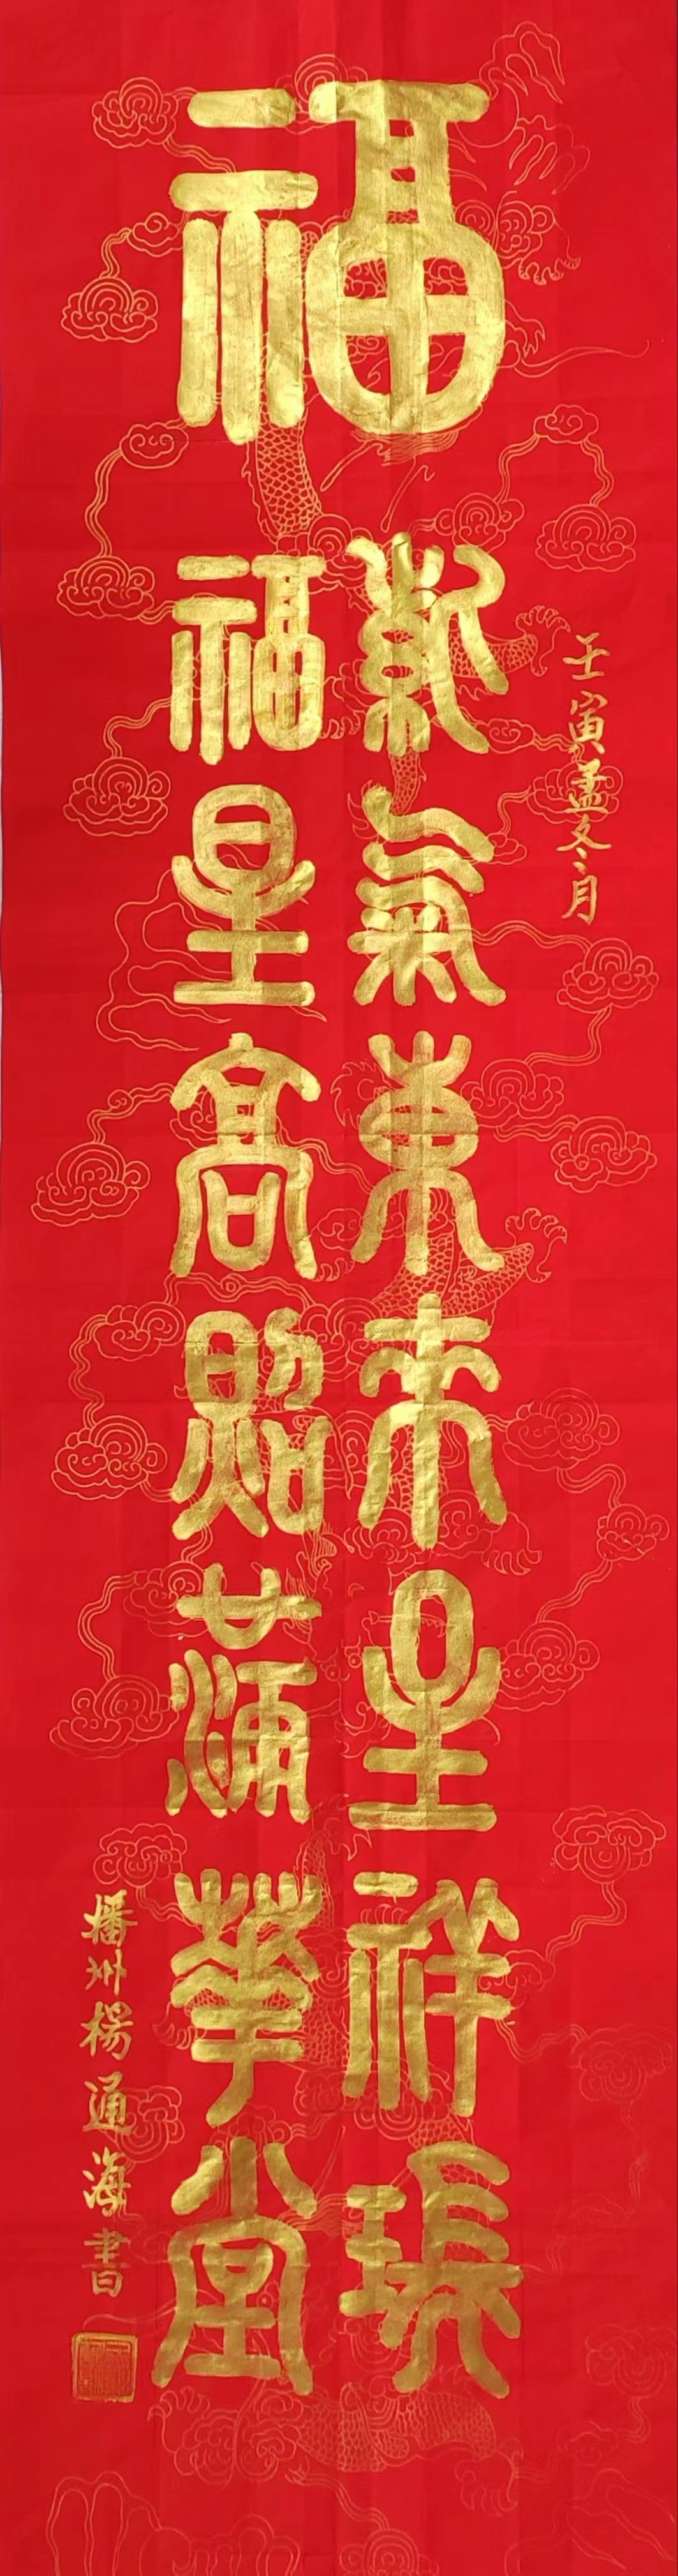 福
壬寅孟冬月
紫氣東來呈祥瑞
福星高照滿華堂
播州楊通海書